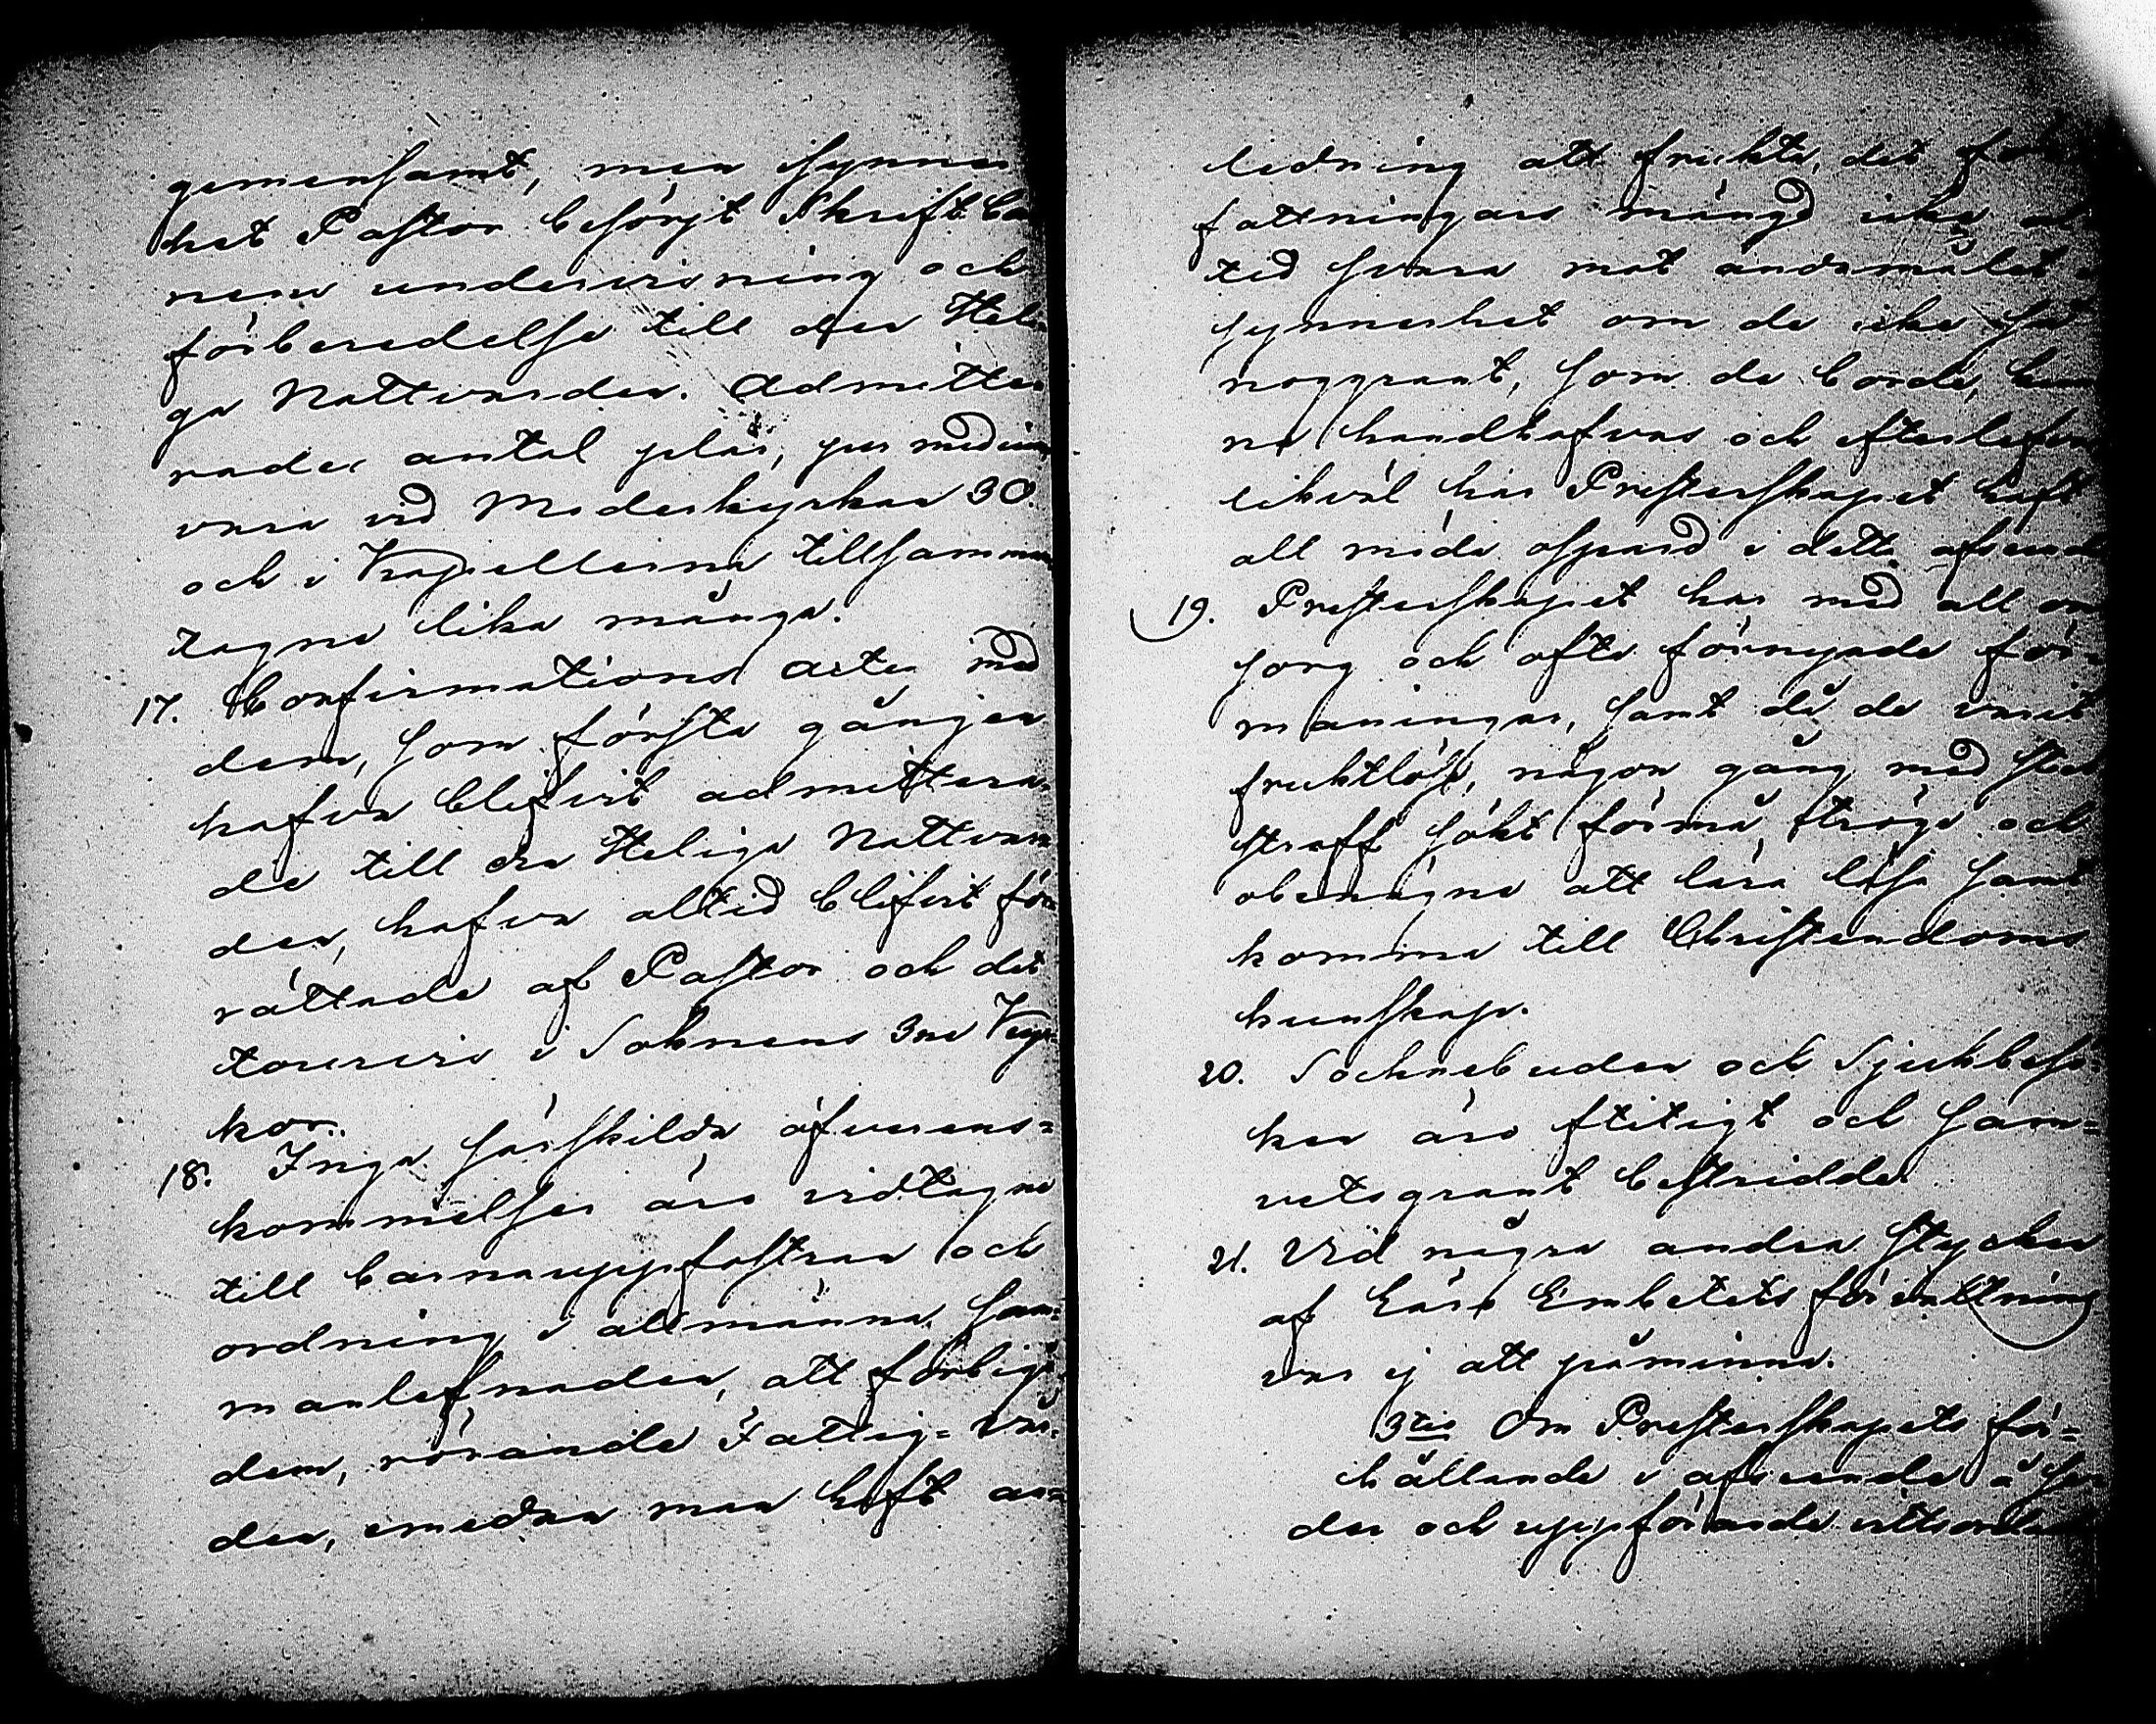 gemensamt, men synner
het Pastor besörjt Skrift ba
nens undervisning och
förberedelse till den Heli
ga Nattvarden. Admitte
rades antal plär, per medium
vara vid Moderkyrkan 30.
och i Kapellerna tillsamman
tagne lika många.
17. Confirmations acten med
dem, som första gången
hafva blifvit admittera
de till den Heliga Nattvar
den, hafva altid blifvit för
rättade af Pastor och det
tourvis i Soknens 3ne Kyr
kor.
18. Inga särskilda öfverens=
kommelser äro vidtagne
till barnauppfostran och
ordning i allmänna sam=
manlefnaden, att förbigå
dem, rörande Fattig=vår=
den, emedan man haft an=
ledning att frukta, det för
fattningars mängd icke al
tid svara mot ändamålet i
synnerhet om de icke så
noggrant, som de borde, kun
na handhafvas och efterlefvas
likväl har Presterskapet haft
all möda ospard i detta afseende
19. Presterskapet har med all om
sorg och ofta förnyade för=
maningar, samt då de varit
fruktlöse, någon gång med stock
straff sökt förmå tröge och
obenägne att lära läsa samt
komma till Christendoms
kunskap.
20. Socknebuden och Sjukbesö
ken äro flitigt och sam=
vetsgrant bestridde
21. Vid några andra stycken
af Läro Embetets förrättning
var ej att påminna.
3tio Om Presterskapets för=
hållande i afseende å se
der och uppförande vitsordad